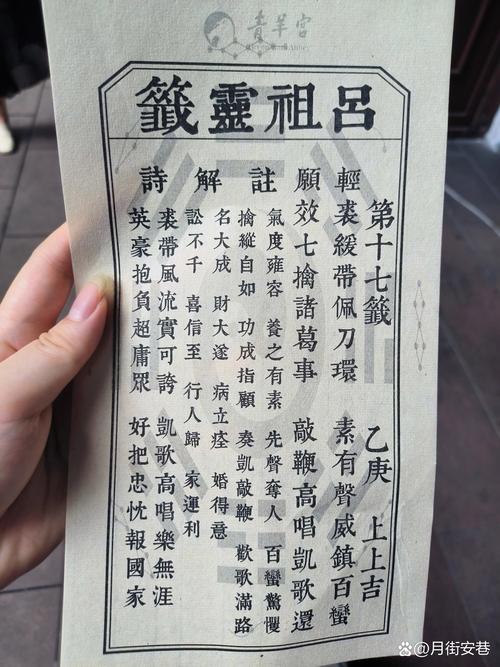 青羊宮
呂祖靈籤
第十七籤 乙庚 上上吉
輕裘緩帶佩刀環 素有聲威鎮百蠻
願效七擒諸葛事 敲鞭高唱凱歌還
註解
氣度雍容 養之有素 先聲奪人 百蠻驚懼
擒縱自如 功成指顧 奏凱敲鞭 歡歌滿路
名大成 財大遂 病立痊 婚得意
訟不千 喜信至 行人歸 家運利
詩
裘帶風流實可誇 凱歌高唱樂無涯
英豪抱負超庸眾 好把忠忱報國家
@月街安巷